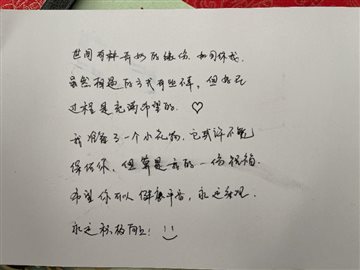 世间有种奇妙的缘份，如同你我，
虽然相遇的方式有些不佳，但相识
过程是充满希望的。♡
我准备了一个小礼物，它或许不能
保佑你，但算是我的一份祝福。
希望你可以健康平吉，永远乐观
永远积极向上！